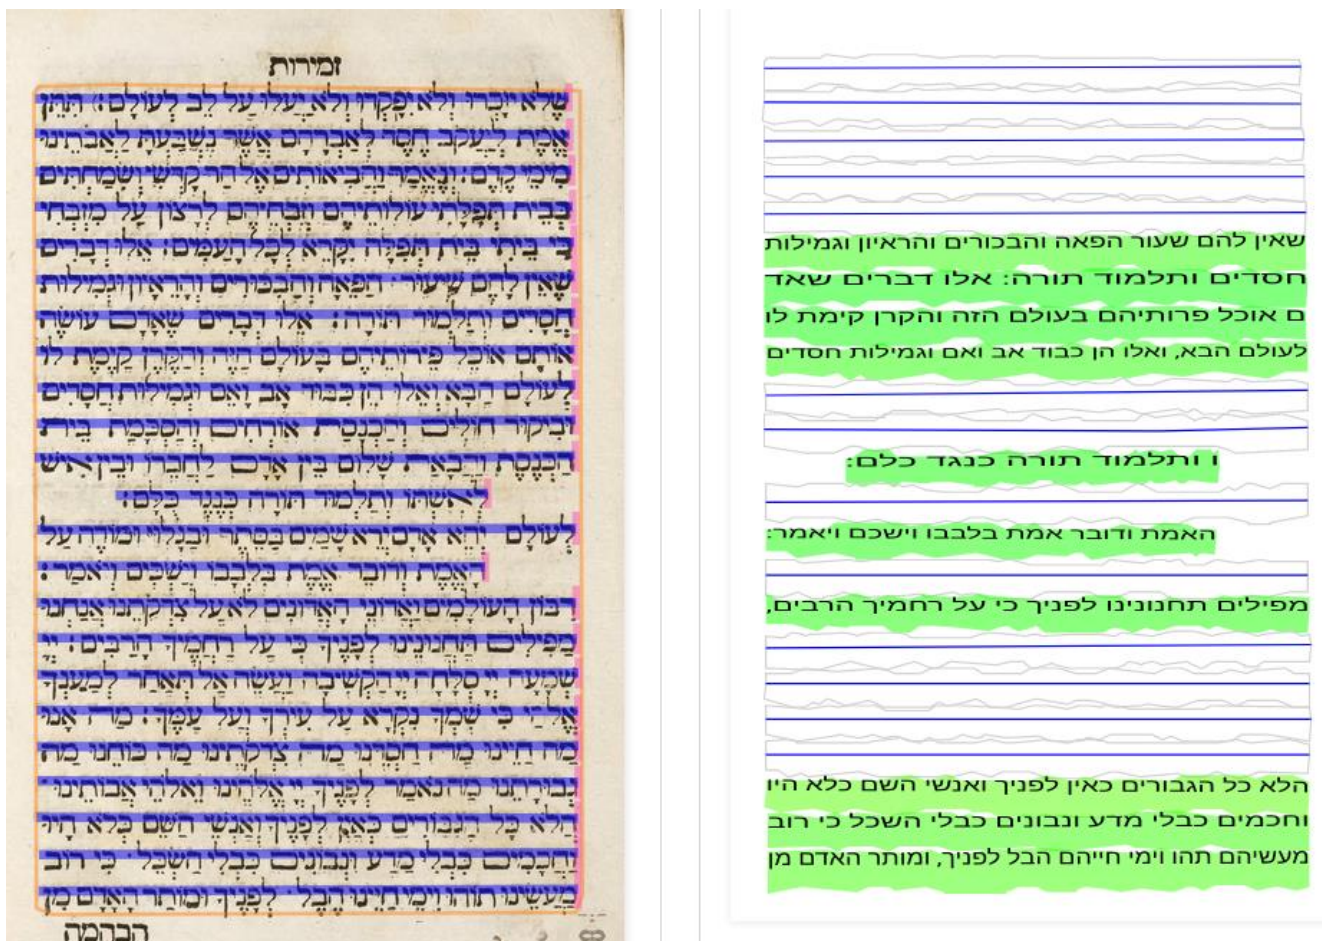 זמירות
שלא ייזכרו ולא יפקדו ולא יעלו על לב לעולם: תתן
אמת ליעקב חסד לאברהם אשר נשבעת לאבתינו
מימי קדם: ונאמר והביאותים אל הר קדשי ושמחתים
בבית תפלתי עולותיהם וזבחיהם לרצון על מזבחי
כי ביתי בית תפלה יקרא לכל העמים: אלו דברים
שאין להם שיעור הפאה והבכורים והראיון וגמילות
חסדים ותלמוד תורה: אלו דברים שאדם עושה
אותם אוכל פירותיהם בעולם הזה והקרן קיימת לו
לעולם הבא ואלו הן כבוד אב ואם וגמילות חסדים
וביקור חולים והכנסת אורחים והסכמת בית
הכנסת והבאת שלום בין אדם לחברו ובין איש
לאשתו ותלמוד תורה כנגד כלם:
לעולם יהא אדם ירא שמים בסתר ובגלוי ומודה על
האמת ודובר אמת בלבבו וישכים ויאמר:
רבון העולמים ואדוני האדונים לא על צדקתנו אנחנו
מפילים תחנונינו לפניך כי על רחמיך הרבים: יי
שמעה יי סלחה יי הקשיבה ועשה אל תאחר למענך
אלהי כי שמך נקרא על עירך ועל עמך: מה אנו
מה חיינו מה חסדינו מה צדקתינו מה כוחנו מה
גבורתנו מה נאמר לפניך יי אלהינו ואלהי אבותינו
הלא כל הגבורים כאין לפניך ואנשי השם כלא היו
וחכמים כבלי מדע ונבונים כבלי השכל כי רוב
מעשינו תוהו וימי חיינו הבל לפניך ומותר האדם מן
הבהמה
שאין להם שעור הפאה והבכורים והראיון וגמילות
חסדים ותלמוד תורה: אלו דברים שאד
ם אוכל פרותיהם בעולם הזה והקרן קימת לו
לעולם הבא, ואלו הן כבוד אב ואם וגמילות חסדים
ו ותלמוד תורה כנגד כלם:
האמת ודובר אמת בלבבו וישכם ויאמר:
מפילים תחנונינו לפניך כי על רחמיך הרבים,
הלא כל הגבורים כאין לפניך ואנשי השם כלא היו
וחכמים כבלי מדע ונבונים כבלי השכל כי רוב
מעשיהם תהו וימי חייהם הבל לפניך, ומותר האדם מן